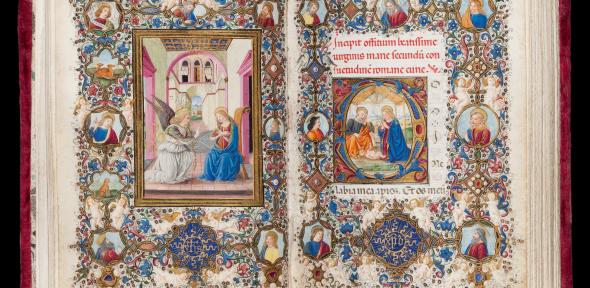 Incipit offitium beatissime
uirginis marie secundũ con
suetudinẽ romane curie
D
Ne
labia mea apries. Et os meũ